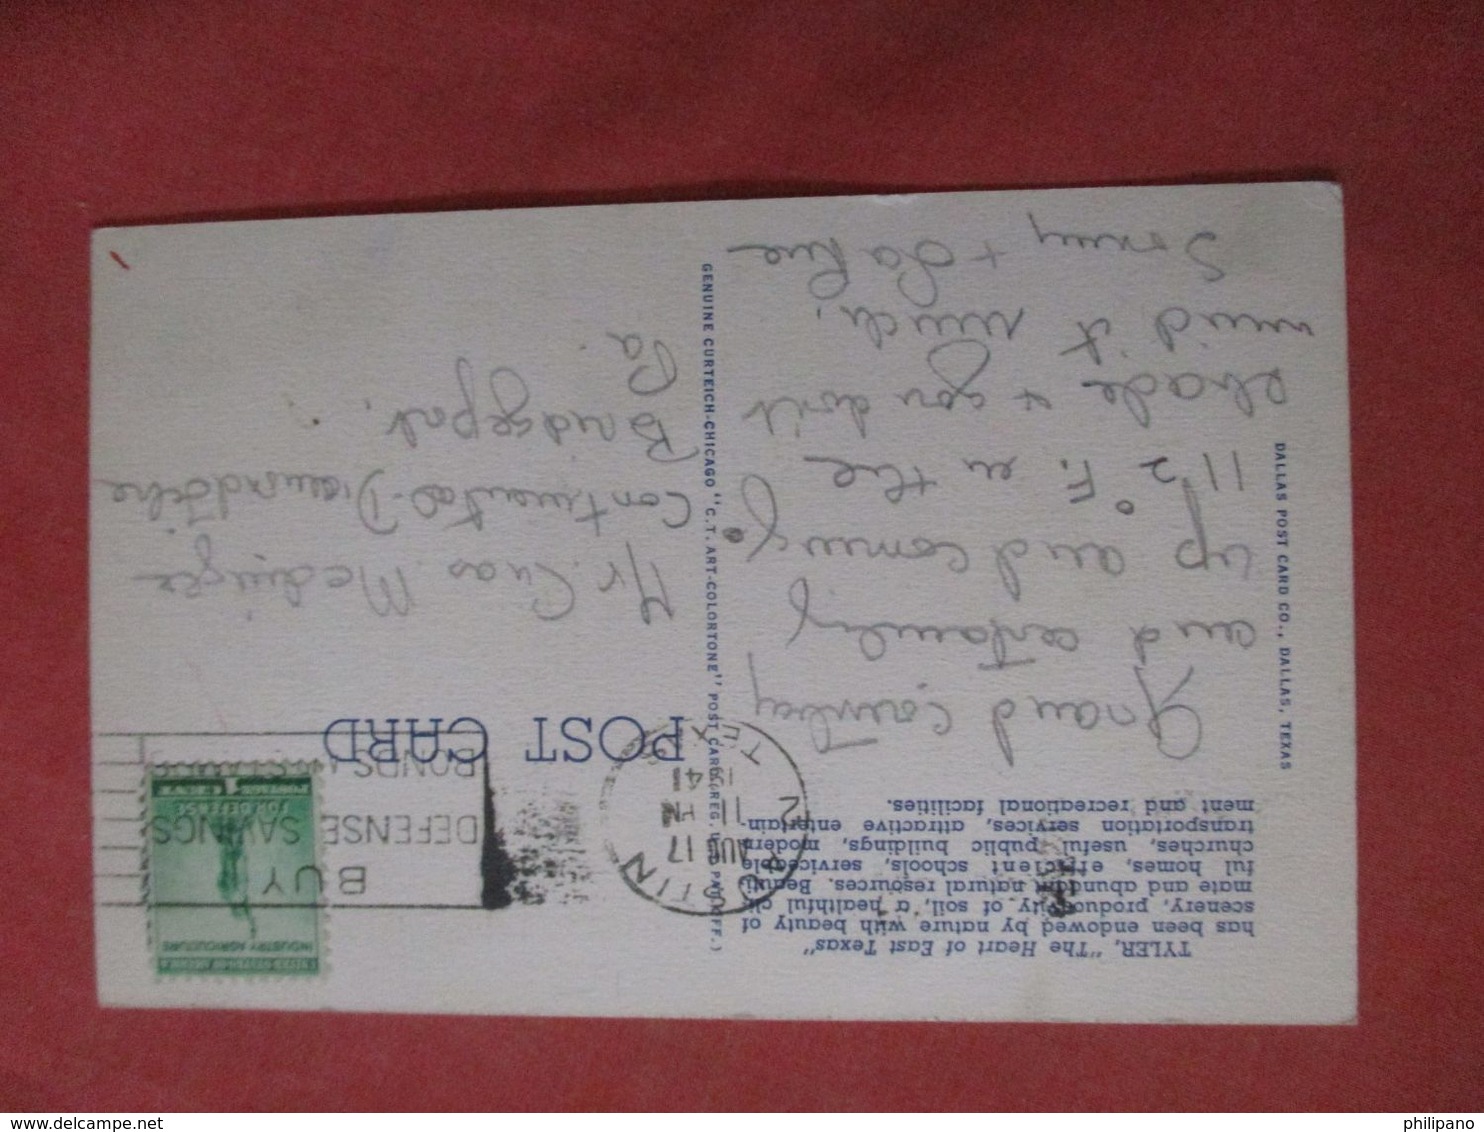 TYLER, "The Heart of East Texas"
has been endowed by nature with beauty of
scenery, productivity of soil, a healthful cli-
mate and abundant natural resources. Beauti-
ful homes, efficient schools, serviceable
churches, useful public buildings, modern
transportation services, attractive entertain-
ment and recreational facilities.
Grand country
and certainly
up and coming.
112° F. in the
shade & you don't
mind it much.
Sonny + La Rue
DALLAS POST CARD CO., DALLAS, TEXAS
GENUINE CURTEICH-CHICAGO "C.T. ART-COLORTONE" POST CARD (REG. U.S. PAT. OFF.)
POST CARD
AUSTIN
AUG 17
11 PM
1941
TEX
BUY
DEFENSE SAVINGS
BONDS
UNITED STATES OF AMERICA
INDUSTRY AGRICULTURE
FOR DEFENSE
POSTAGE 1 CENT
Mr. Chas Medinger
Continental-Diamond Fibre
Bridgeport,
Pa.
philipano